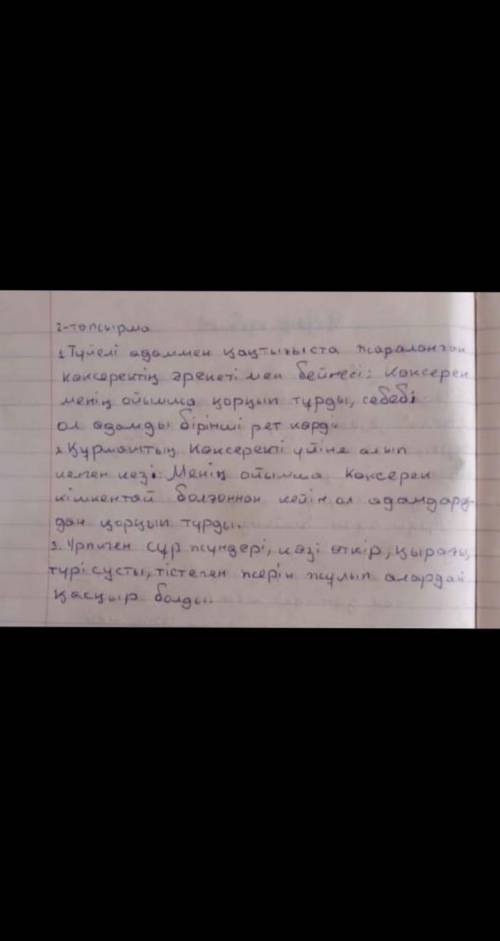 2-тапсырма
1. Түйелі адаммен қақтығыста жараланған
көксеректің әрекеті мен бейнесі: Көксерек
менің ойымша қорқып тұрды, себебі
ол адамды бірінші рет көрді
2. Құрмаштың Көксеректі үйіне алып
келген кезі: Менің ойымша Көксерек
кішкентай болғаннан кейін ол адамдард
дан қорқып тұрды.
3. Үрпиген сұр жүндері, көзі өткір, қырағы,
түрі сусты, тістеген жерін жұлып алардай
қасқыр болды.